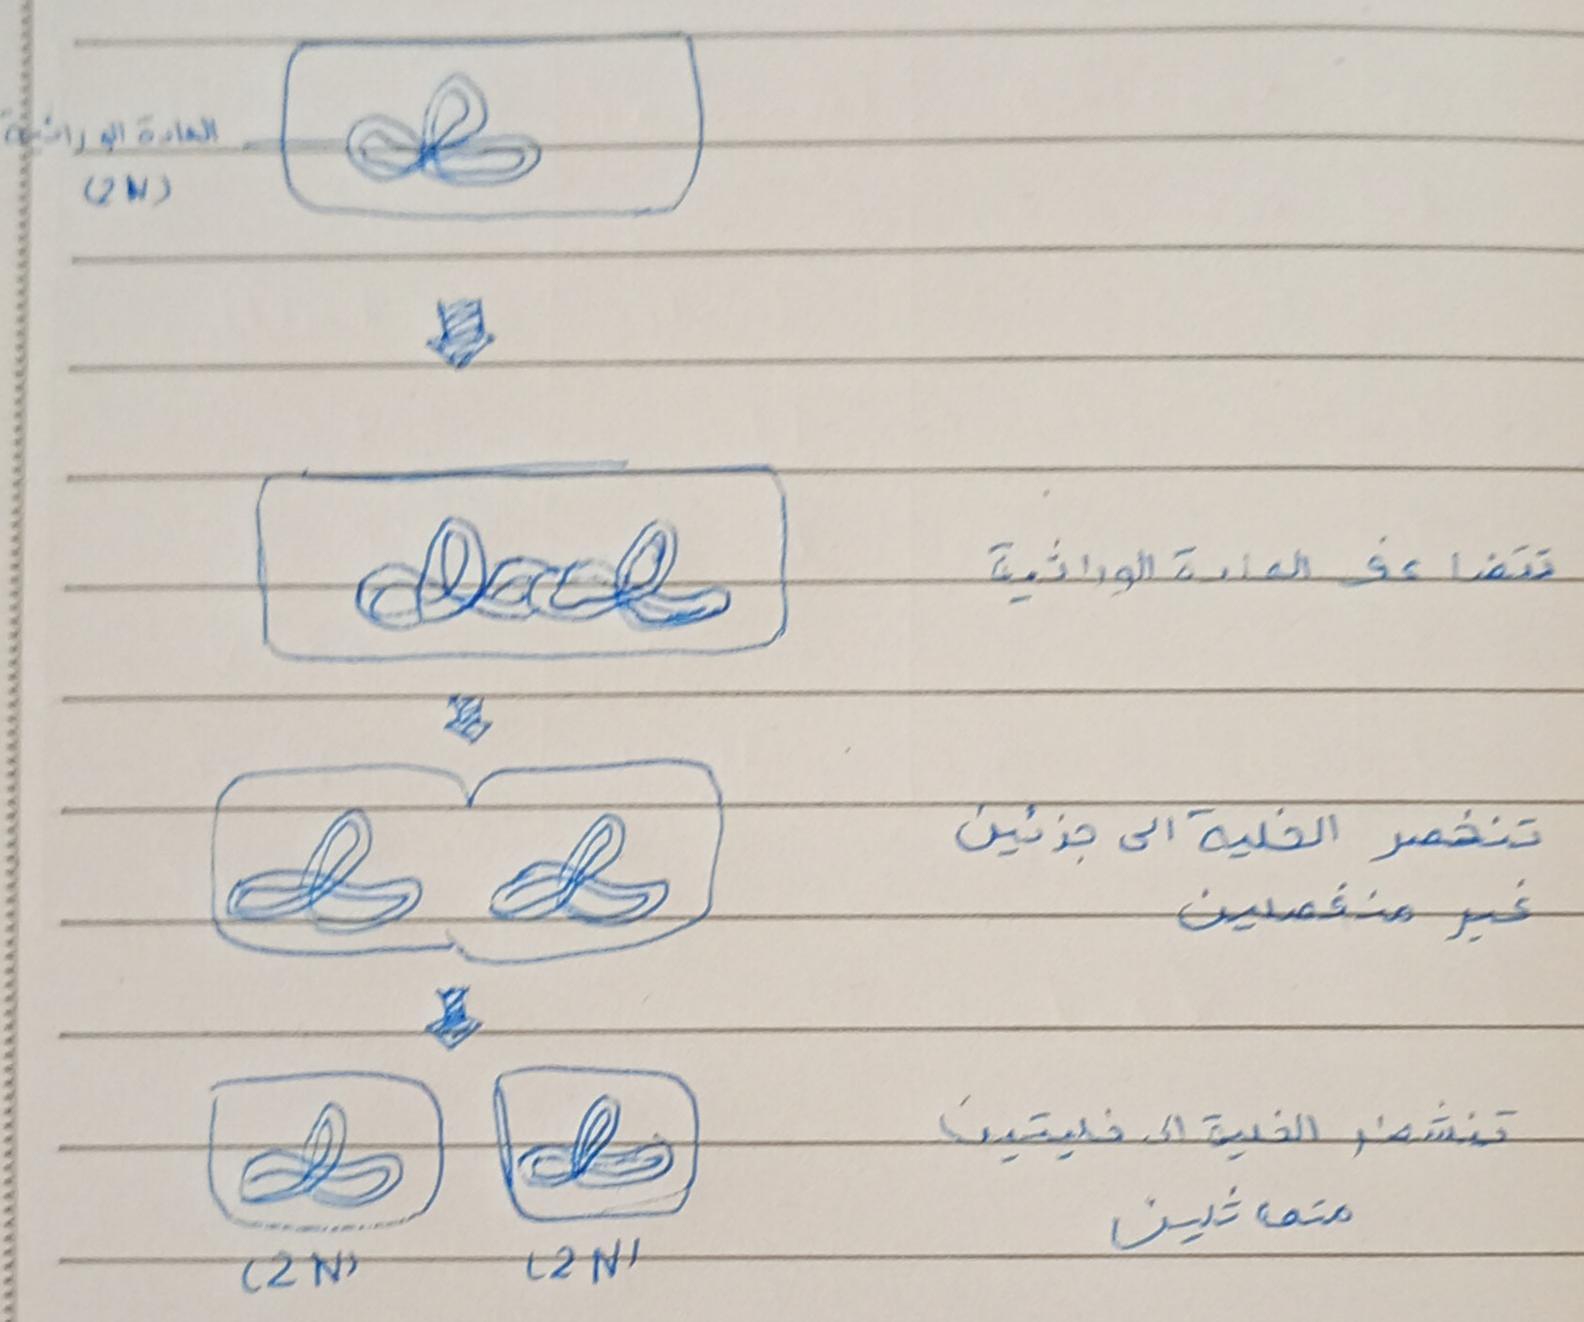 المادة الوراثية
(2N)
تتضاعف المادة الوراثية
تنخصر الخلية الى جزئين
غير منفصلين
تنشطر الخلية الى خليتين
متماثلين
(2N)
(2N)